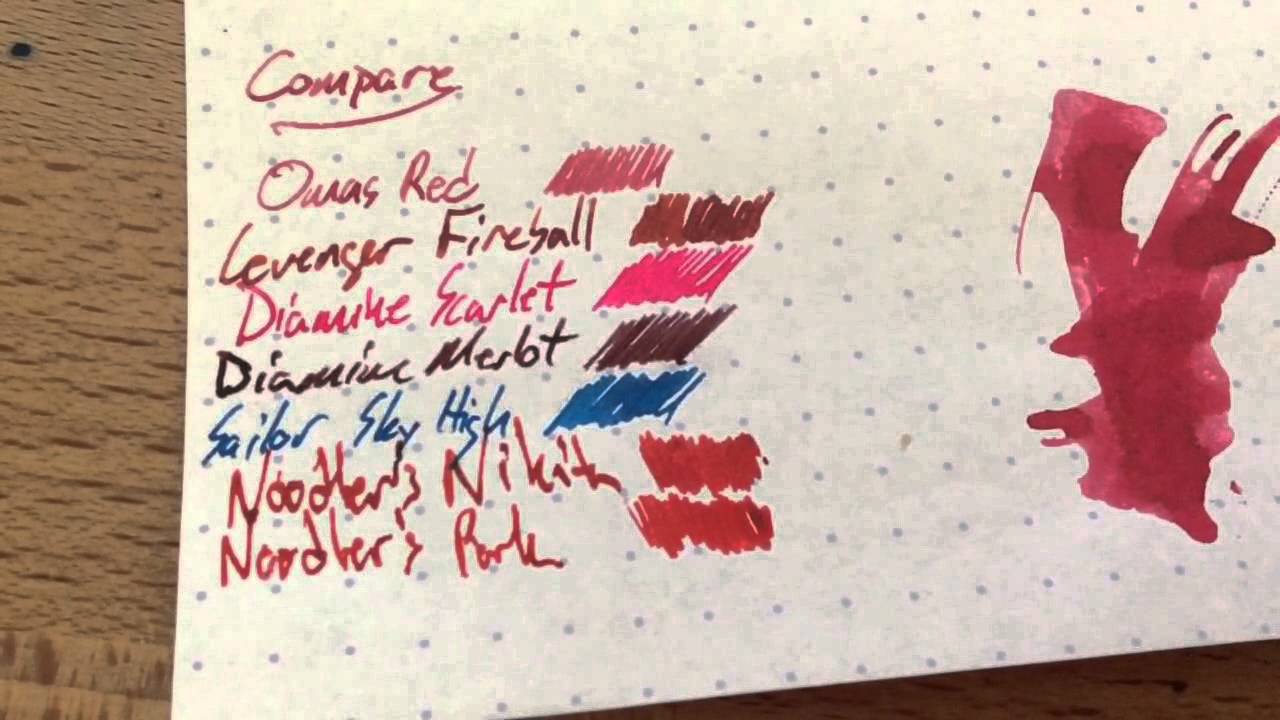 Compare
Omas Red
Levenger Fireball
Diamine Scarlet
Diamine Merlot
Sailor Sky High
Noodler's Nikita
Noodler's Park